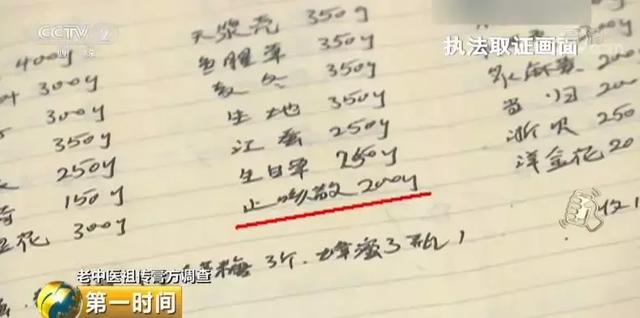 CCTV 2
财经
执法取证画面
400g
300g
300g
350g
250g
150g
花 300g
天浆壳 350g
鱼腥草 350g
麦冬 350g
生地 350g
江蚕 250g
生甘草 250g
止咳散 200g
200
当归 200
浙贝 250
洋金花 20
梅 3个. 蜂蜜3瓶
老中医祖传膏方调查
第一时间